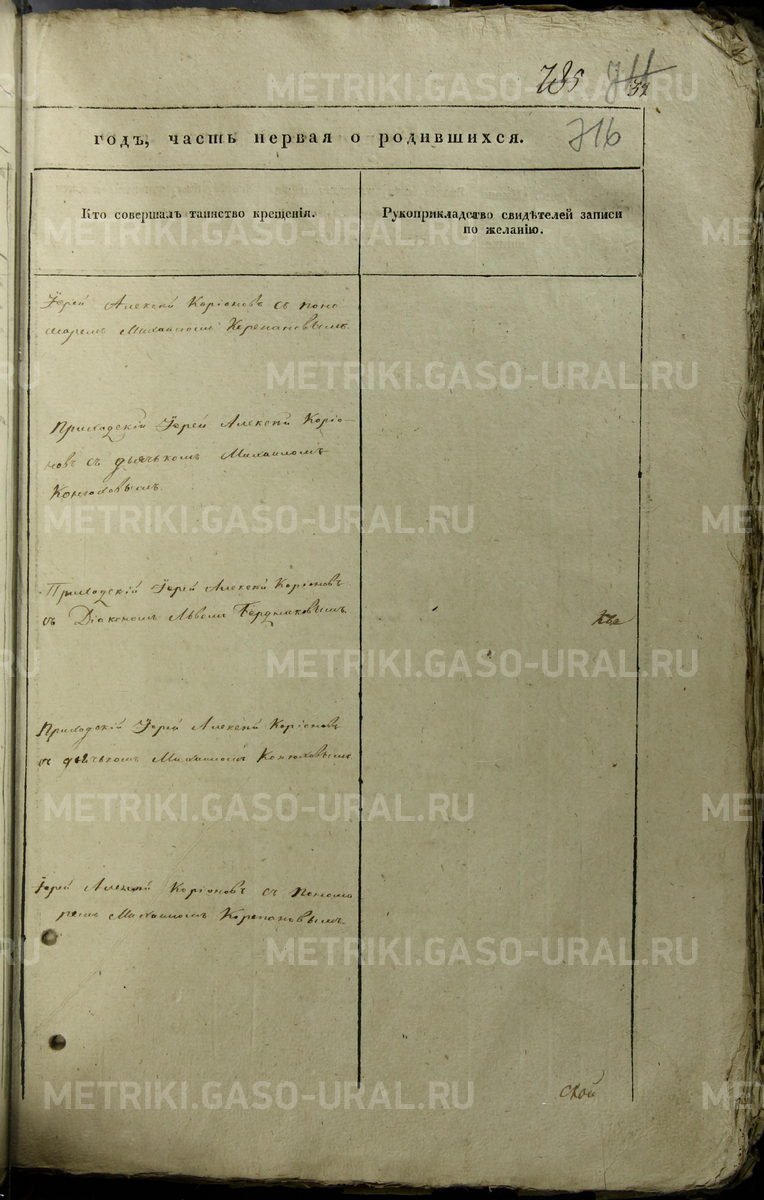 735
716
годъ, часть первая о родившихся.
Кто совершалъ таинство крещенія.
Рукоприкладство свидѣтелей записи
по желанію.
Іерей Алексѣй Коріоновъ съ поно
маремъ Михаиломъ Корепановымъ
Приходскій Іерей Алексѣй Коріо-
новъ съ дьячькомъ Михаиломъ
Конюховымъ.
Приходскій Іерей Алексѣй Коріоновъ
съ Діакономъ Львомъ Бердниковымъ
Приходскій Іерей Алексѣй Коріоновъ
съ дьячькомъ Михаиломъ Конюховымъ
Іерей Алексѣй Коріоновъ съ понома
ремъ Михаиломъ Корепановымъ.
ской
METRIKI.GASO-URAL.RU